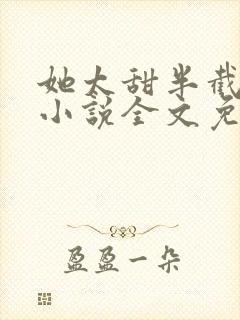 她太甜半截
小说全文免
盈盈一朵